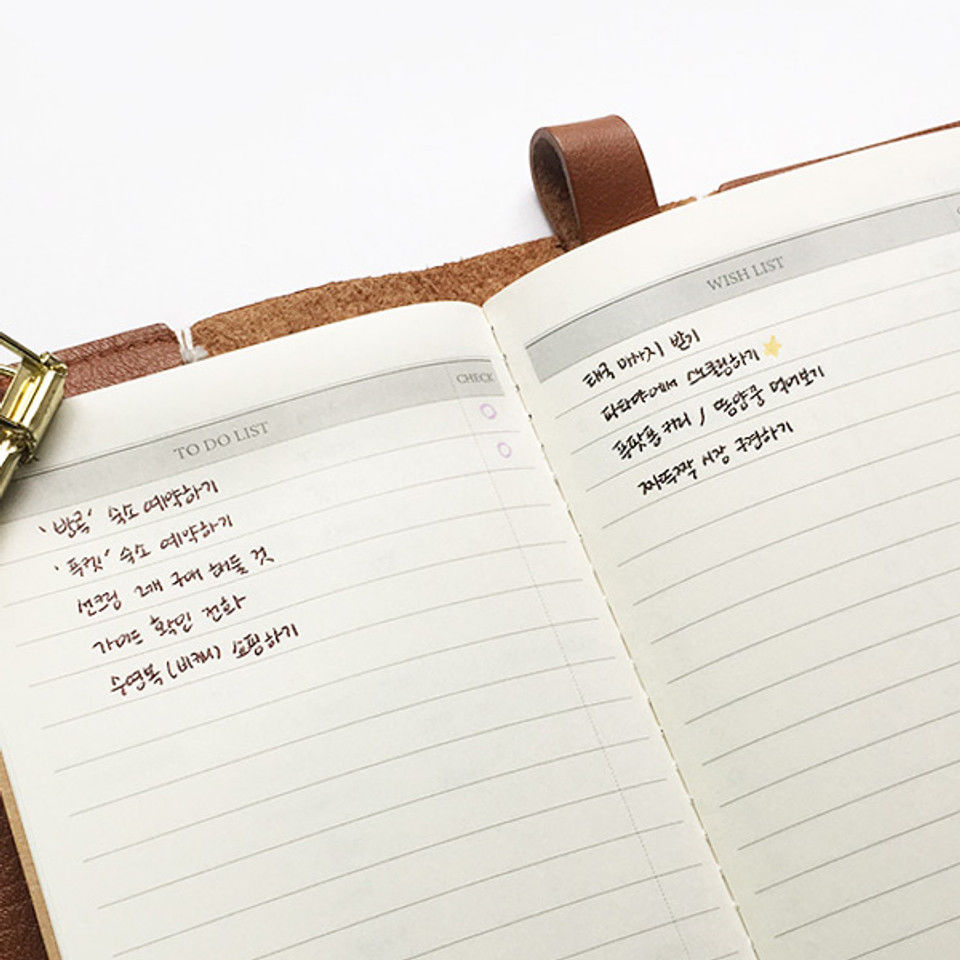 TO DO LIST
CHECK
'방콕' 숙소 예약하기
'푸켓' 숙소 예약하기
선크림 2개 구매 해둘 것
가이드 확인 전화
수영복 (비키니) 쇼핑하기
WISH LIST
태국 마사지 받기
파타야에서 스노쿨링하기
푸팟퐁 커리 / 똠양꿍 먹어보기
짜뚜짝 시장 구경하기